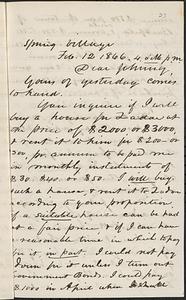 Spring Cottage
Feb. 12 1866, 4 P.M.
Dear Johnny,
Yours of yesterday comes
to hand.
You inquire if I will
buy a house for Eudora at
the price of $2000 or $3000,
& rent it to him for $200 or
300 pr. annum to be pd me
in monthly instalments of
$30. $40. or $50. I will buy
such a house & rent it to
according to your proposition
if a suitable house can be had
at a fair price & if I can have
a reasonable time in which to pay
for it in part. I could not pay
down for it unless I turn out
Government Bonds. I could pay
$1000 in April when